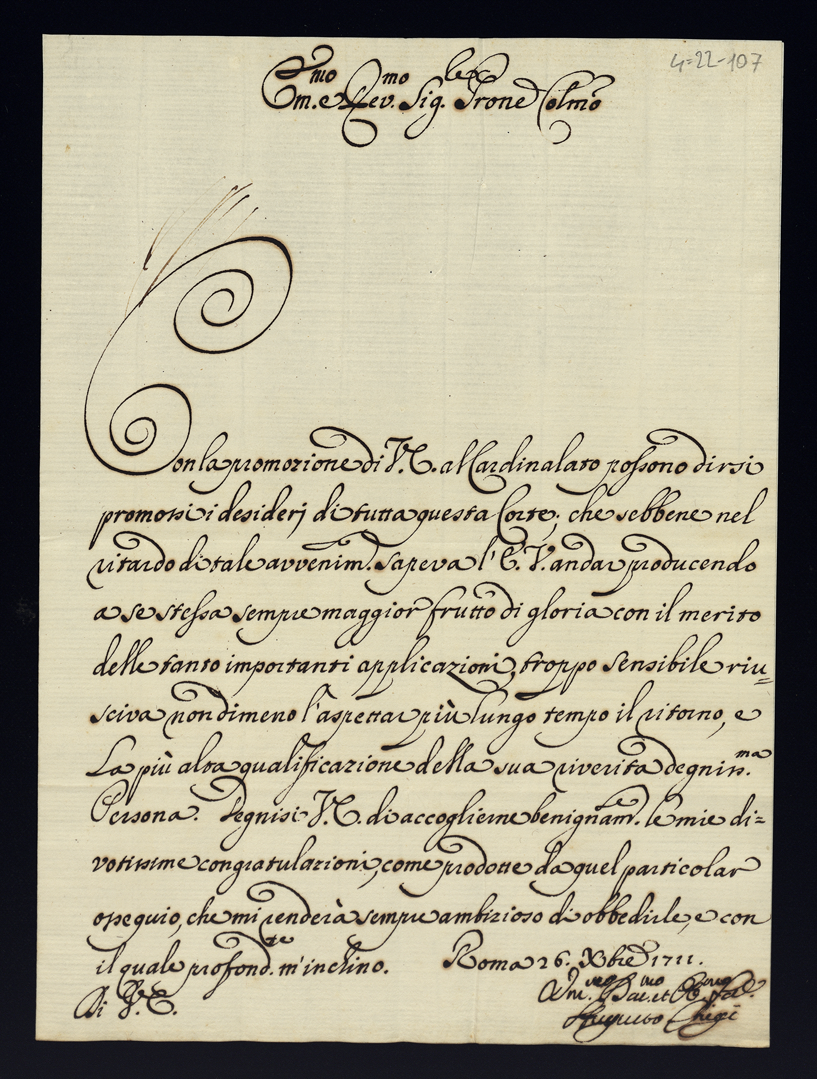 4-22-107
Em.mo e Rev.mo Sig.re P̄rone Colmō
Con la promozione di V.E. al Cardinalato possono dirsi
promossi i desiderj di tutta questa Corte; che sebbene nel
ritardo di tale avvenim.to sapeva l'E.V. andar producendo
a se stessa sempre maggior frutto di gloria con il merito
delle tanto importanti applicazioni, troppo sensibile riu=
sciva nondimeno l'aspettar più lungo tempo il ritorno, e
La più alta qualificazione della sua riverita degniss.ma
Persona. Degnisi V.E. di accoglierne benignam.te le mie di=
votissime congratulazioni, come prodotte da quel particolar
ossequio, che mi renderà sempre ambizioso di obbedirle, e con
il quale profond.te m'inchino. Roma 26. Xbre 1711.
Di V.E.
Augusto Chigi